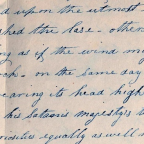 d upon the utmost
shed the lase. othe
ng as if the wind m
ok. on the same day
earing its head high
his satanic majesty's
riosities equally as well a